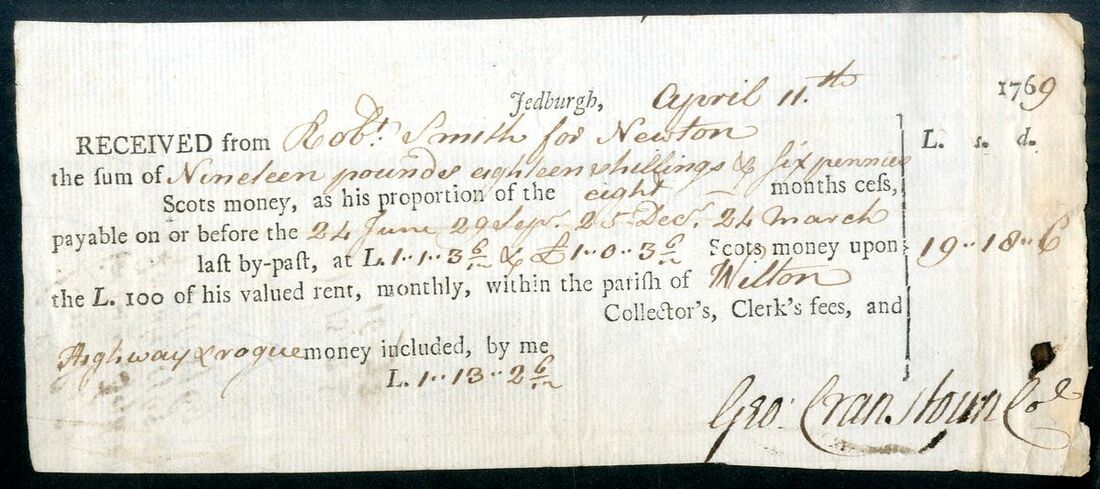 Jedburgh, April 11.th 1769
RECEIVED from Robt. Smith for Newton L. s. d.
the ſum of Nineteen poundes eighteen shillings & six pennies
Scots money, as his proportion of the eight months ceſs,
payable on or before the 24 June 29 Sepr. 25 Decr. 24 March
laſt by-paſt, at L. 1..1..3 6/12 & £1..0..3 6/12 Scots money upon 19..18..6
the L. 100 of his valued rent, monthly, within the pariſh of Wilton
Collector's, Clerk's fees, and
Highway & rogue money included, by me
L. 1..13..2 6/12
Geo: Cranstoun Col